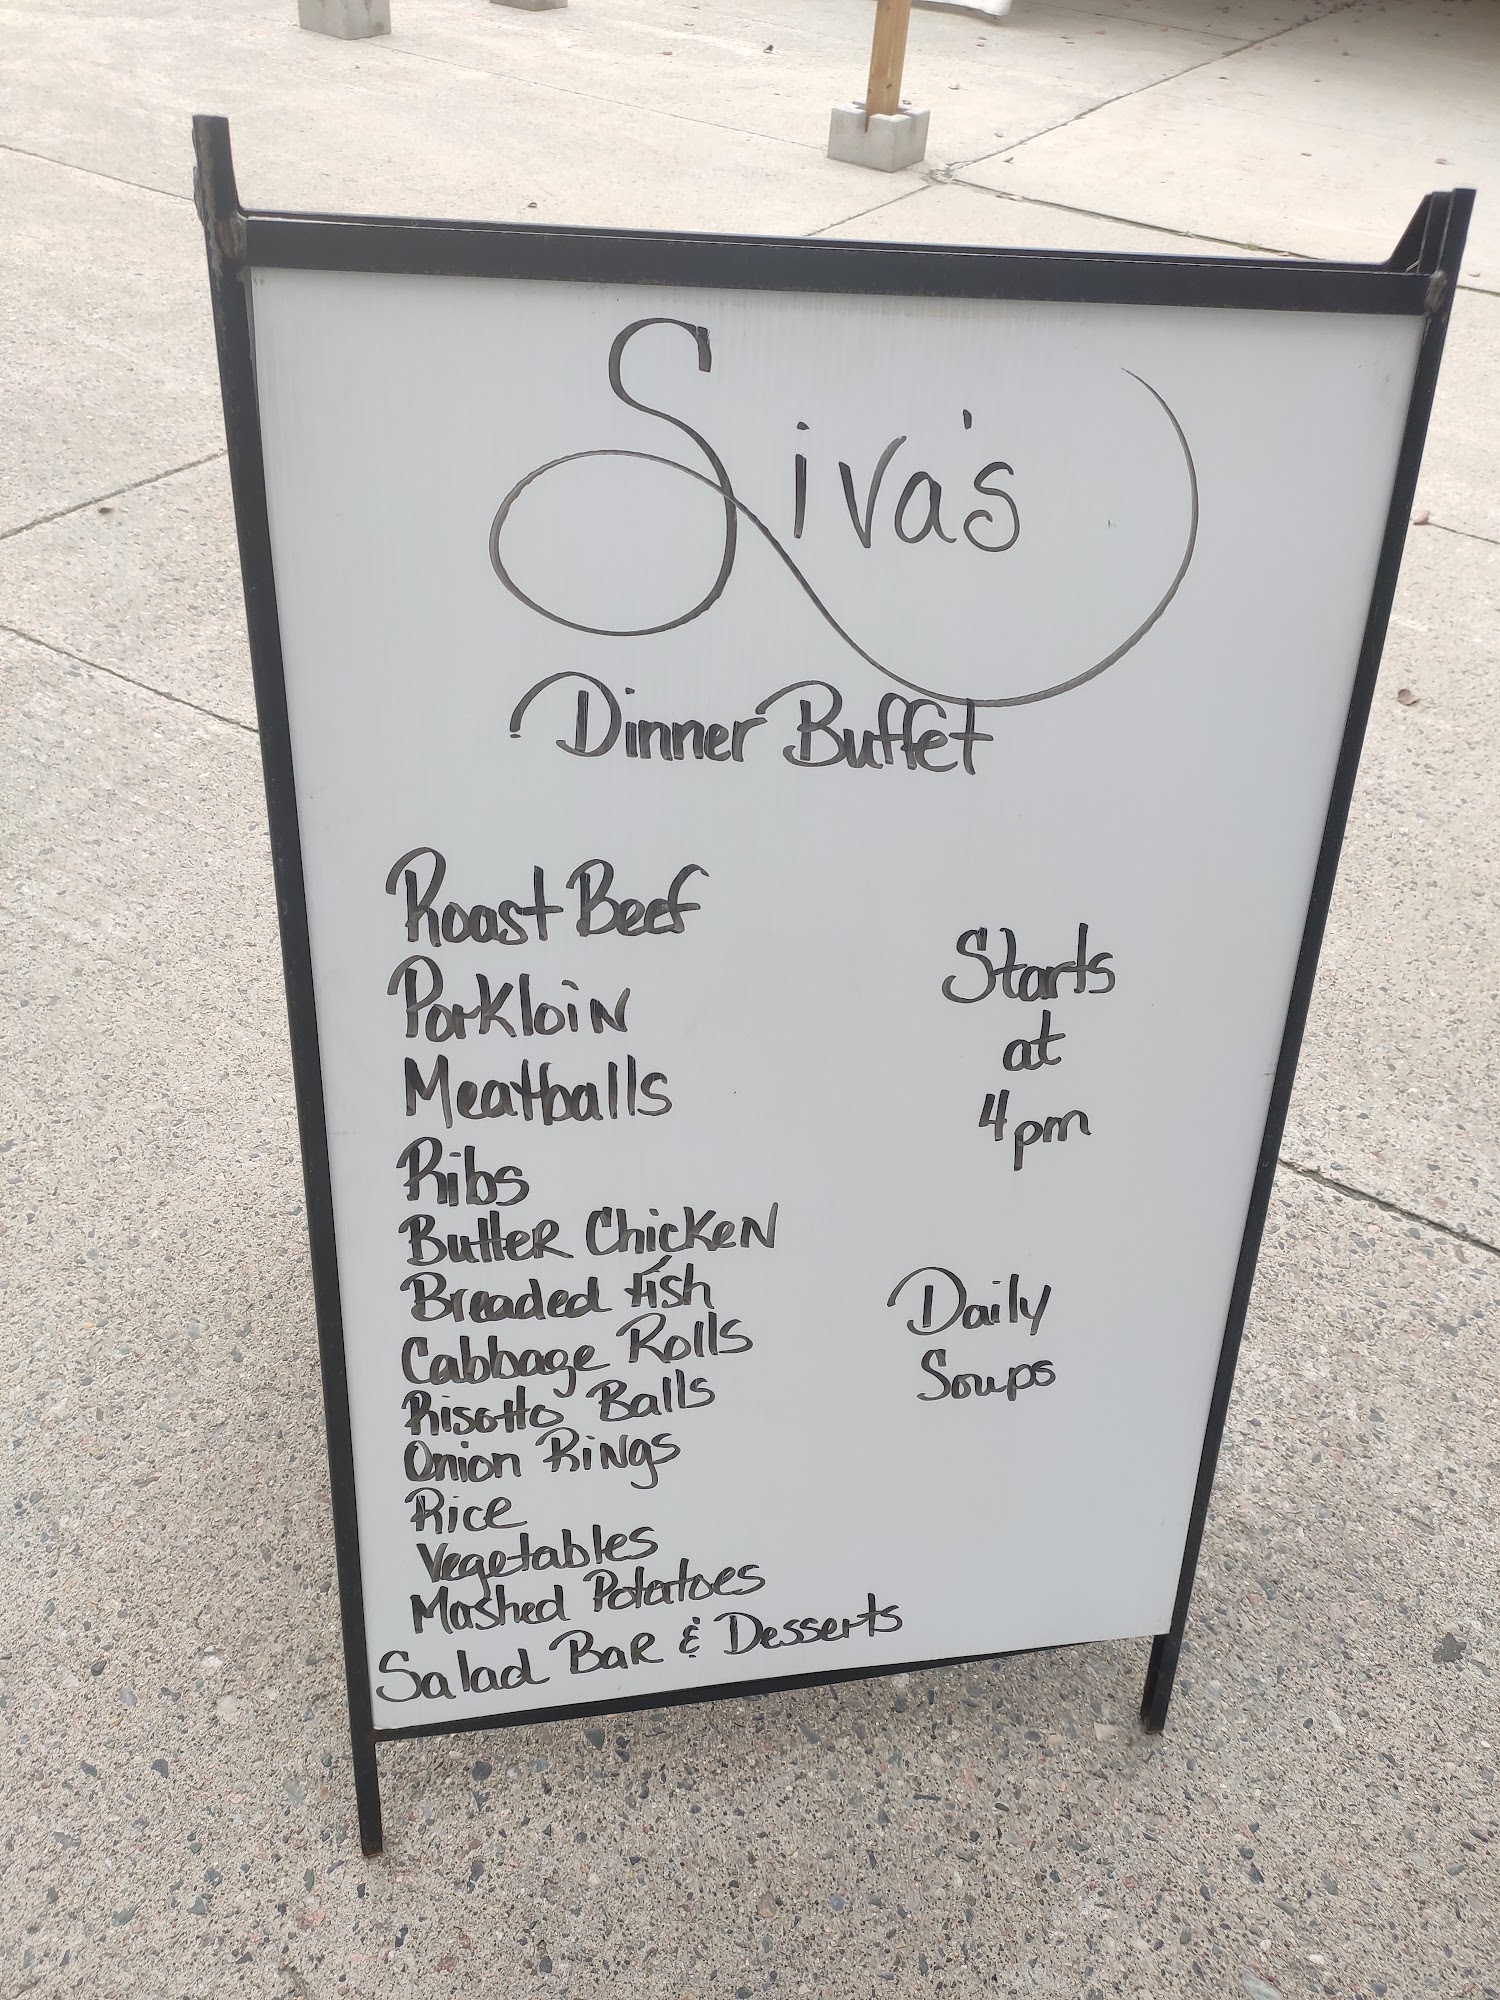 Siva's
Dinner Buffet
Roast Beef
Porkloin
Meatballs
Ribs
Butter Chicken
Breaded Fish
Cabbage Rolls
Risotto Balls
Onion Rings
Rice
Vegetables
Mashed Potatoes
Salad Bar & Desserts
Starts
at
4pm
Daily
Soups